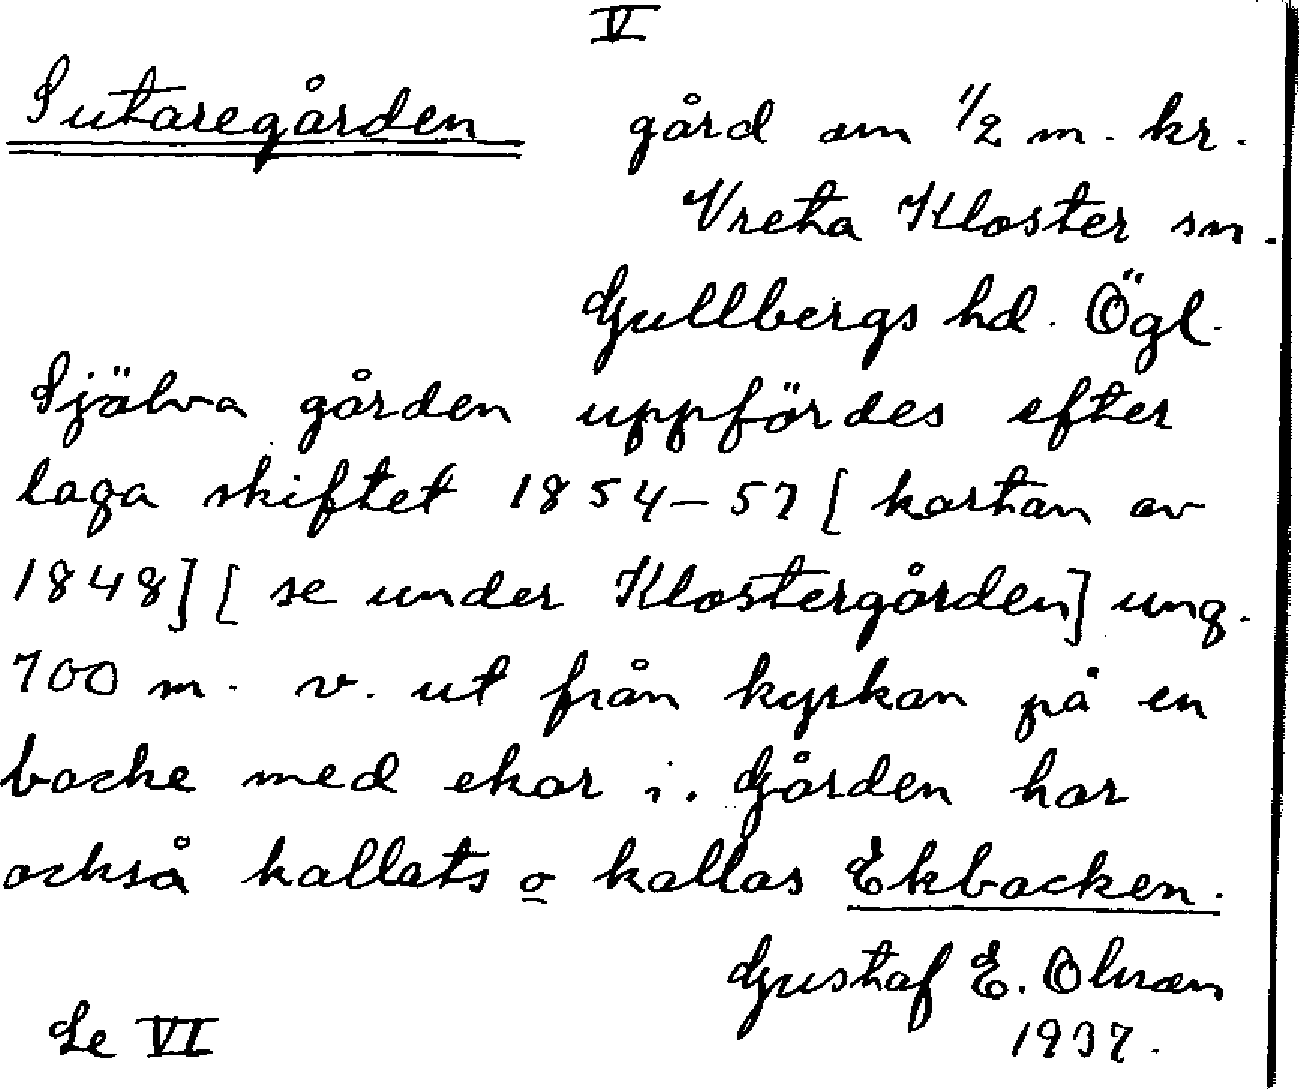 V
Sutaregården gård om 1/2 m. kr.
Vreta Kloster sn.
Gullbergs hd. Ögl.
Själva gården uppfördes efter
laga skiftet 1854-57 [ kartan av
1848] [ se under Klostergården] ung.
700 m. v. ut från kyrkan på en
backe med ekar i. Gården har
också kallats o kallas Ekbacken.
Gustaf E.
Se VI 1937.